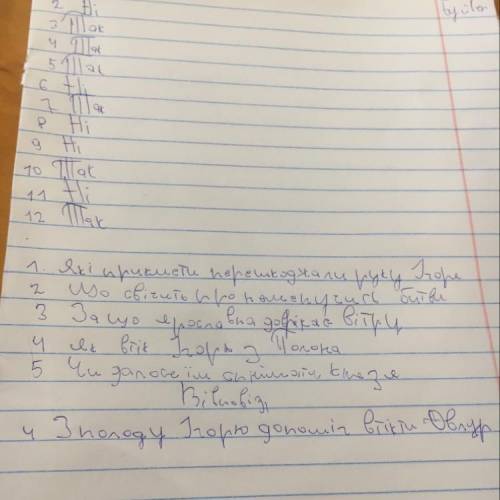 2 Ні
3 Так
4 Так
5 Так
6 Ні
7 Так
8 Ні
9 Ні
10 Так
11 Ні
12 Так
1. Які прикмети перешкоджали руху Ігоря
2 Що свічить про битви
3 За що Ярославна докікає вітру
4 Як втік Ігорь з Полона
5 Чи князя
Відповіді
4 З полоду Ігорю допоміг втікти - Овлур